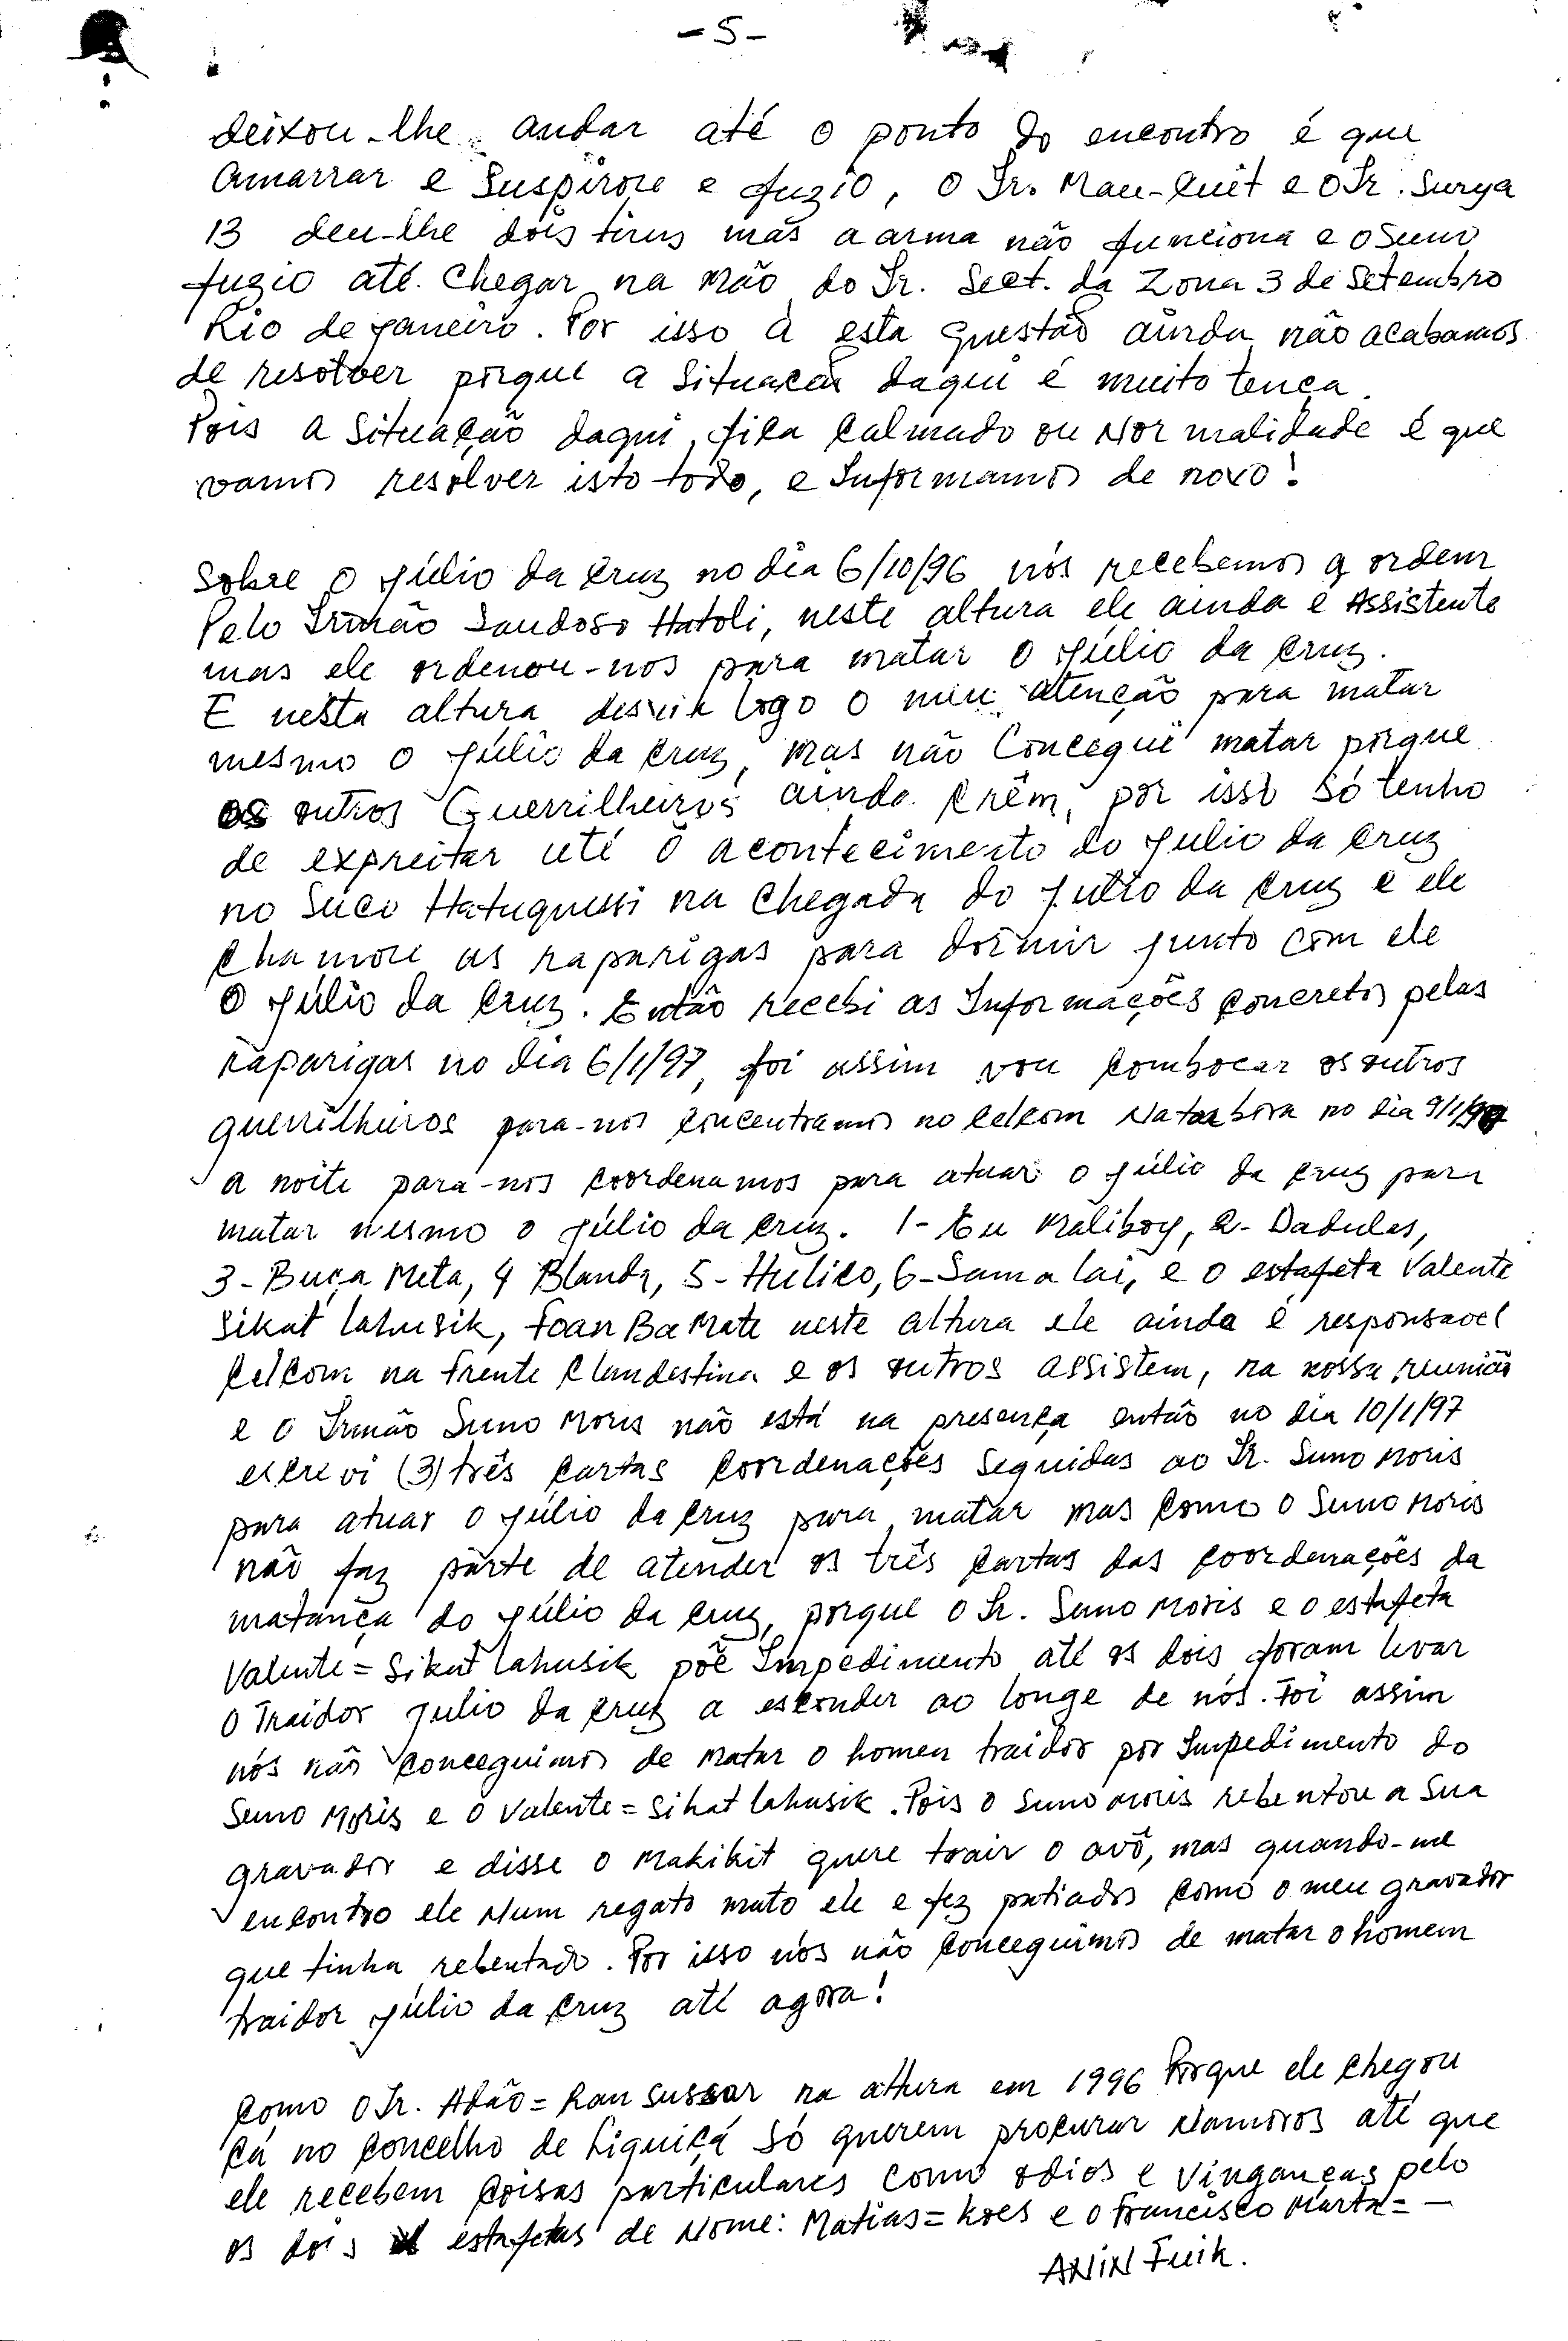 - 5 -
deixou-lhe andar até o ponto do encontro é que
Amarrar e Suspirou e fuzio, o Sr. Mau-Quit e o Sr. Surya
13 deu-lhe dois tirus mas a arma não funciona e o Suno
fuzio até chegar na mão do Sr. Sect. da Zona 3 de Setembro
Rio de janeiro. Por isso à esta questão ainda não acabamos
de resolver porque a Situacão daqui é muito tença.
Pois a Situação daqui, fica Calmado ou Normalidade é que
vamos resolver isto todo, e Informamos de novo!
Sobre o júlio da Cruz no dia 6/10/96 nós recebemos a ordem
Pelo Irmão Saudoso Hatoli, neste altura ele ainda é Assistente
mas ele ordenou-nos para matar o júlio da Cruz.
E nesta altura desvia logo o meu atenção para matar
mesmo o júlio da Cruz, mas não Conceque matar porque
os outros Guerrilheiros ainda Crêm, por isso Só tenho
de expreitar até o acontecimento do julio da Cruz
no Suco Hatuquessi na chegada do julio da Cruz e ele
chamou as raparigas para dormir junto com ele
O júlio da Cruz. Então recebi as Informações concretos pelas
raparigas no dia 6/1/97, foi assim vou combocar os outros
guerrilheiros para-nos concentramos no Celcom Natarbora no dia 9/1/97
a noite para-nos coordenamos para atuar o júlio da Cruz para
matar mesmo o júlio da Cruz. 1- Eu Maliboy, 2- Dadulas,
3- Buça Meta, 4 Blanda, 5- Hulico, 6- Sama lai, e o estafeta Valente
Sikat Lahusik, Foan Ba Mate neste altura ele ainda é responsavel
Celcom na Frente Clandestina e os outros assistem, na nossa reunião
e o Irmão Suno Moris não está na presença então no dia 10/1/97
escrevi (3) três cartas Coordenações Seguidas ao Sr. Suno Moris
para atuar o júlio da Cruz para matar mas como o Suno Moris
não faz parte de atender os três cartas das coordenações da
matança do júlio da Cruz, porque o Sr. Suno Moris e o estafeta
Valente = Sikat Lahusik põe Impedimento até os dois foram levar
o Traidor julio da Cruz a esconder ao longe de nós. Foi assim
nós não conceguimos de matar o homen traidor por Impedimento do
Suno Moris e o Valente = Sikat Lahusik. Pois o Suno Moris rebentou a Sua
gravador e disse o Makikit quere trair o avô, mas quando-me
encontro ele Num regato mato ele e fez patiados como o meu gravador
que tinha rebentado. Por isso nós não conceguimos de matar o homem
traidor júlio da Cruz até agora!
Como o Sr. Adão = Ran Sussar na altura em 1996 Porque ele chegou
cá no concelho de Liquiçá Só querem procurar Namoros até que
ele recebem coisas particulares como odios e Vinganças pelo
os dois estafetas de Nome: Matias = Koes e o Francisco Marta = —
ANIN Fuik.